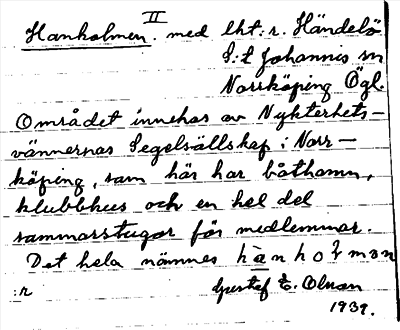 II
Hankolmen. med lht:r. Händelö
S:t Johannis sn
Norrköping Ögl.
Området innehas av Nykterhets-
vännernas Segelsällskap i Norr-
köping, som här har båthamn,
klubbhus och en hel del
sommarstugor för medlemmar.
Det hela nämnes
:r Gustaf E. Olsson
1939.